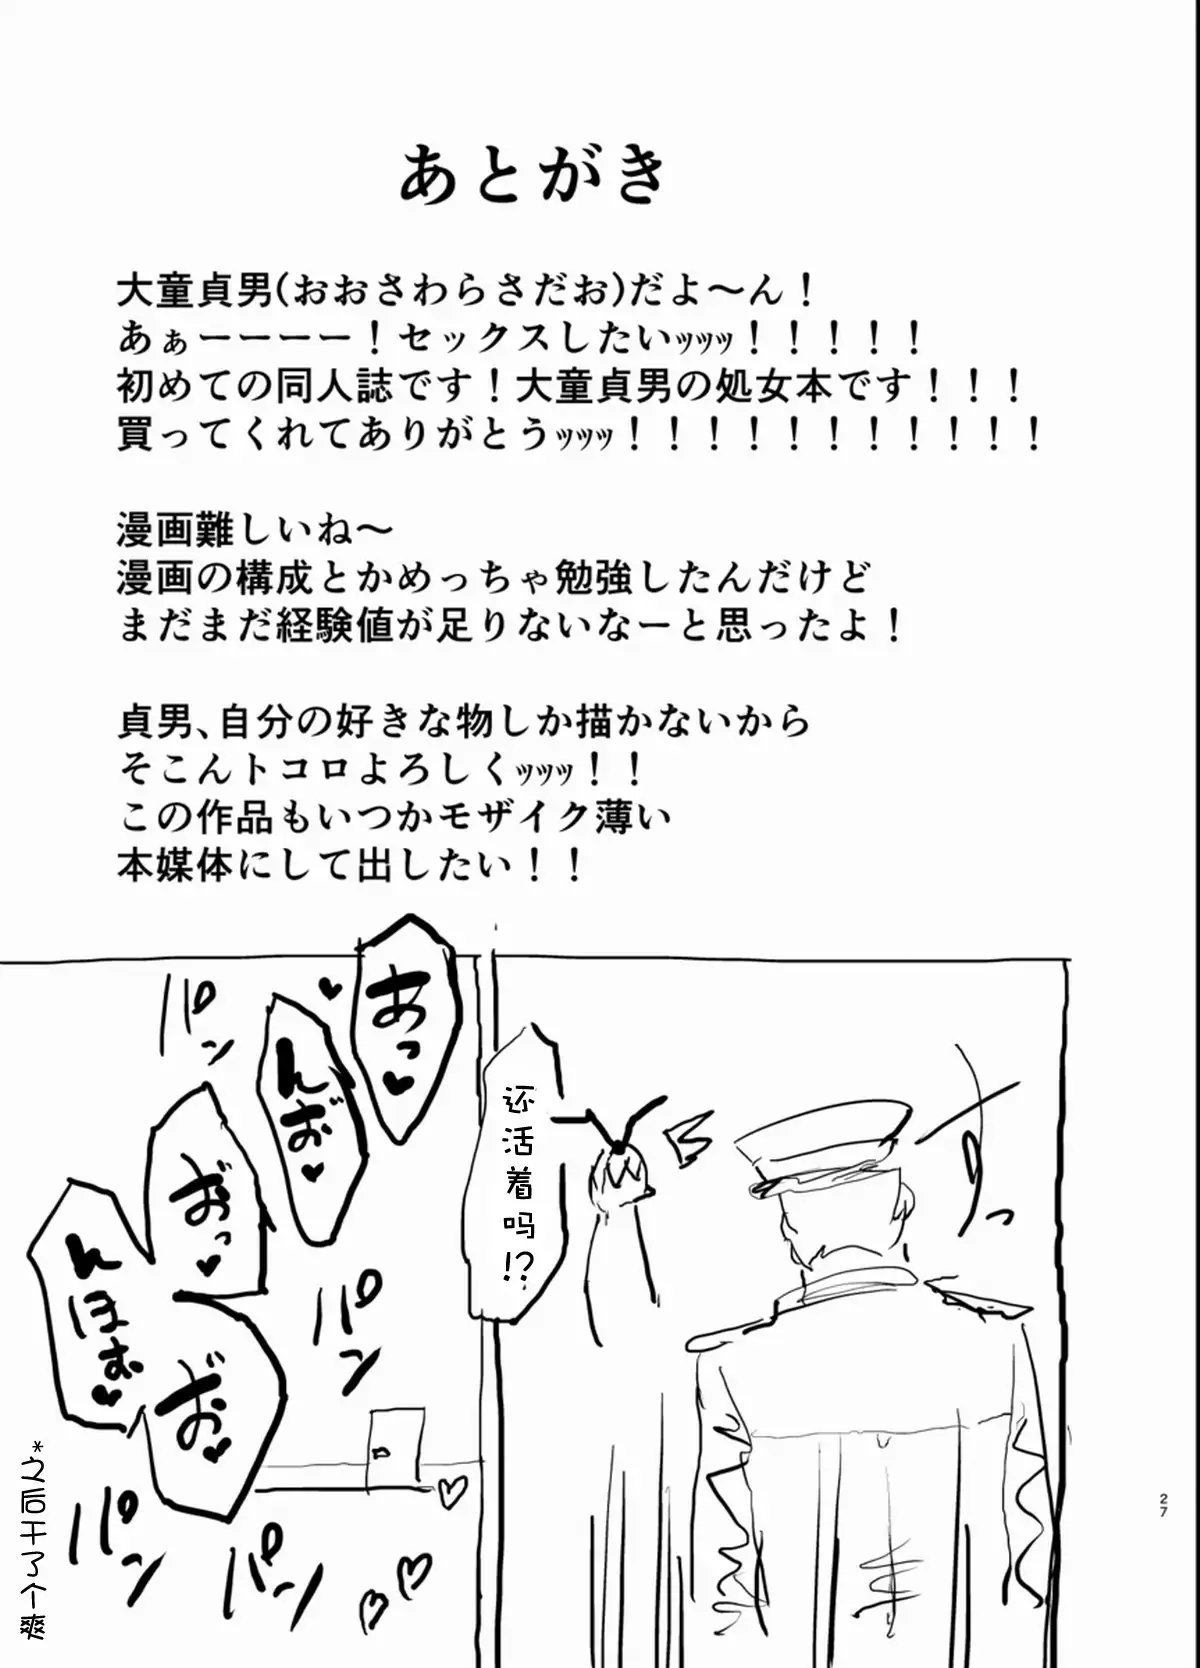 あとがき
大童貞男(おおさわらさだお)だよ〜ん！
あぁーーーー！セックスしたいッッッ！！！！！
初めての同人誌です！大童貞男の処女本です！！！
買ってくれてありがとうッッッ！！！！！！！！！！！
漫画難しいね〜
漫画の構成とかめっちゃ勉強したんだけど
まだまだ経験値が足りないなーと思ったよ！
貞男、自分の好きな物しか描かないから
そこんトコロよろしくッッッ！！
この作品もいつかモザイク薄い
本媒体にして出したい！！
还活着吗!?
あっ♥
んお゛♥
お゛っ♥
んほぉ♥
お゛♥
パン
パン
パン
パン
*之后干了个爽
27